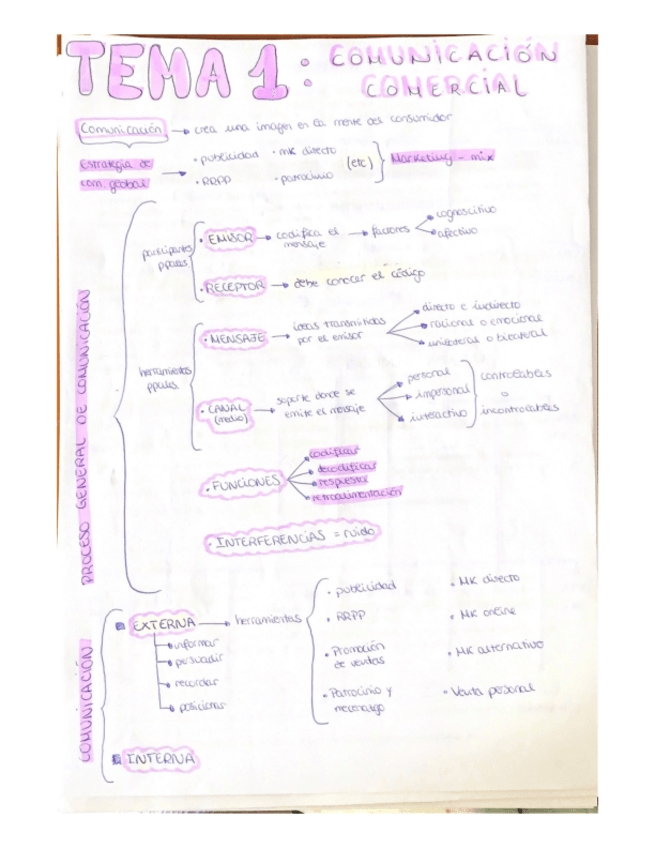 TEMA 1: COMUNICACIÓN
COMERCIAL
Comunicación → crea una imagen en la mente del consumidor
Estrategia de
com. global → · publicidad · mk directo
· RRPP · patrocinio
(etc) Marketing - mix
PROCESO GENERAL DE COMUNICACIÓN
participantes
ppales.
· EMISOR → codifica el
mensaje → factores
cognoscitivo
afectivo
· RECEPTOR → debe conocer el código
herramientas
ppales.
· MENSAJE → ideas transmitidas
por el emisor
directo e indirecto
racional o emocional
unilateral o bilateral
· CANAL
(medio) → soporte donde se
emite el mensaje
personal
impersonal
interactivo
controlables
o
incontrolables
· FUNCIONES
codificar
decodificar
respuesta
retroalimentación
· INTERFERENCIAS = ruido
COMUNICACIÓN
EXTERNA → herramientas
informar
persuadir
recordar
posicionar
· publicidad
· RRPP
· Promoción
de ventas
· Patrocinio y
mecenazgo
· MK directo
· MK online
· MK alternativo
· Venta personal
INTERNA